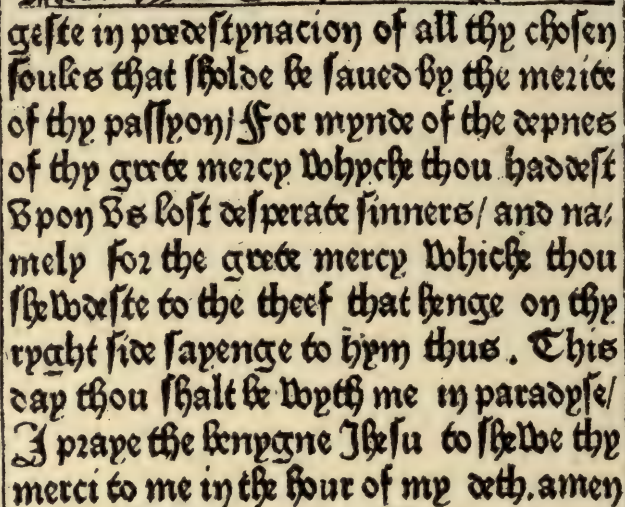 geste in predestynacion of all thy chosen
soules that sholde be saued by the merite
of thy passyon/ For mynde of the depnes
of thy grete mercy whyche thou haddest
vpon vs lost desperate sinners/ and na⸗
mely for the grete mercy whiche thou
shewdeste to the theef that henge on thy
ryght side sayenge to hym thus. This
day thou shalt be wyth me in paradyse/
I praye the benygne Ihesu to shewe thy
merci to me in the hour of my deth. amen